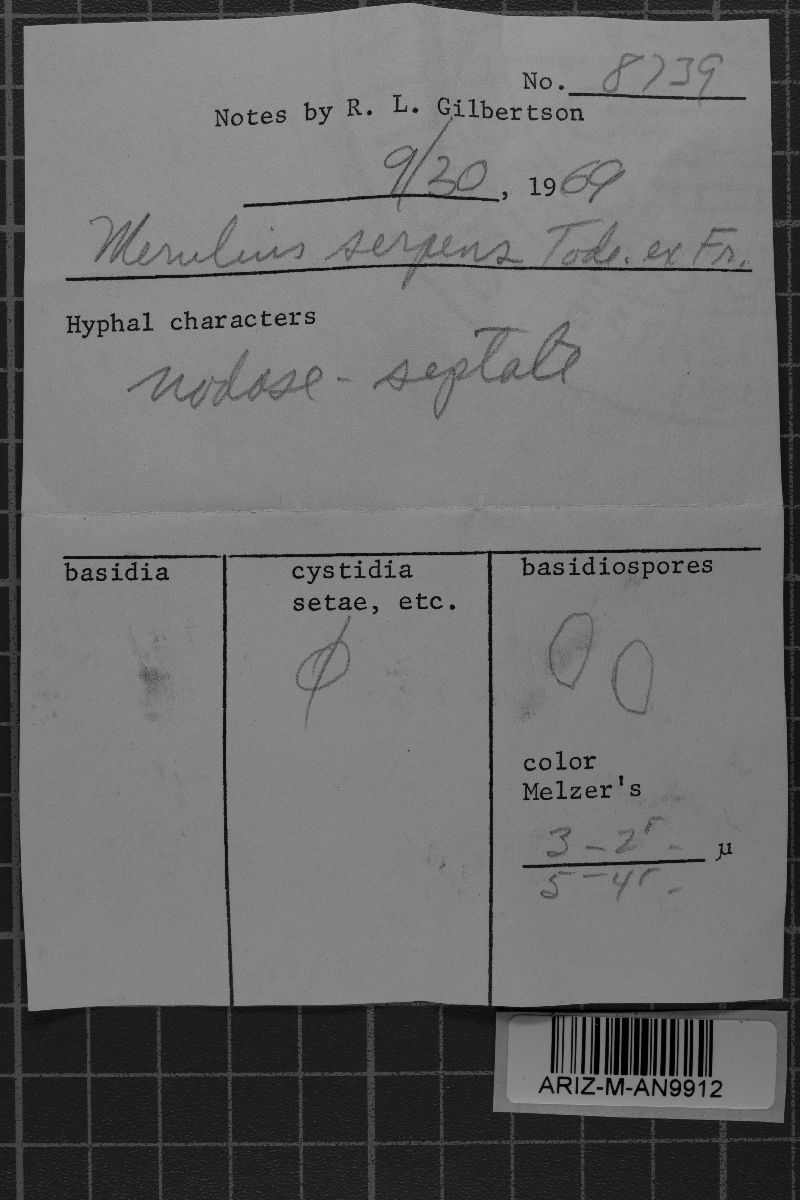 No. 8739
Notes by R. L. Gilbertson
9/30, 1969
Merulius serpens Tode. ex Fr.
Hyphal characters
nodose-septate
basidia
cystidia
setae, etc.
ϕ
basidiospores
color
Melzer's
3 - 2 - µ
5 - 4 -
ARIZ-M-AN9912